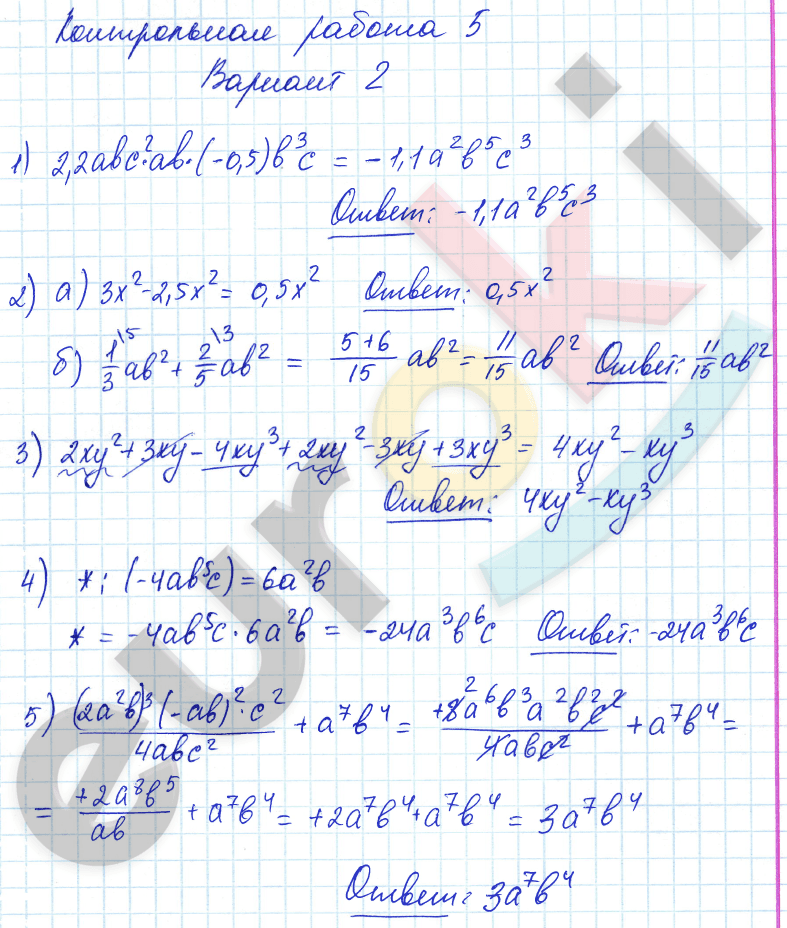 Контрольная работа 5
Вариант 2
1) 2,2abc²·ab·(-0,5)b³c = -1,1a²b⁵c³
Ответ: -1,1a²b⁵c³
2) а) 3x²-2,5x² = 0,5x² Ответ: 0,5x²
б) 1/3 \5 ab² + 2/5 \3 ab² = (5+6)/15 ab² = 11/15 ab² Ответ: 11/15 ab²
3) 2xy²+3xy-4xy³+2xy²-3xy+3xy³ = 4xy²-xy³
Ответ: 4xy²-xy³
4) * : (-4ab⁵c) = 6a²b
* = -4ab⁵c·6a²b = -24a³b⁶c Ответ: -24a³b⁶c
5) (2a²b)³·(-ab)²·c² / 4abc² + a⁷b⁴ = +8²a⁶b³a²b²c² / 4abc² + a⁷b⁴ =
= +2a⁸b⁵ / ab + a⁷b⁴ = +2a⁷b⁴+a⁷b⁴ = 3a⁷b⁴
Ответ: 3a⁷b⁴
euroki